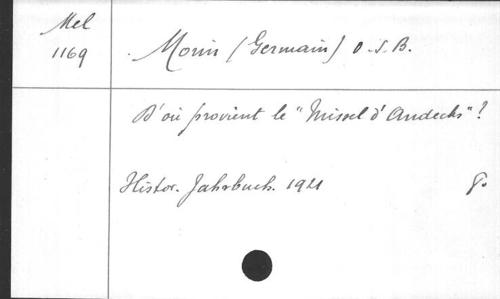 Mel
1169
Morin (Germain) O.S.B.
D'où provient le "Missel d'Andechs"?
Histor. Jahrbuch. 1921